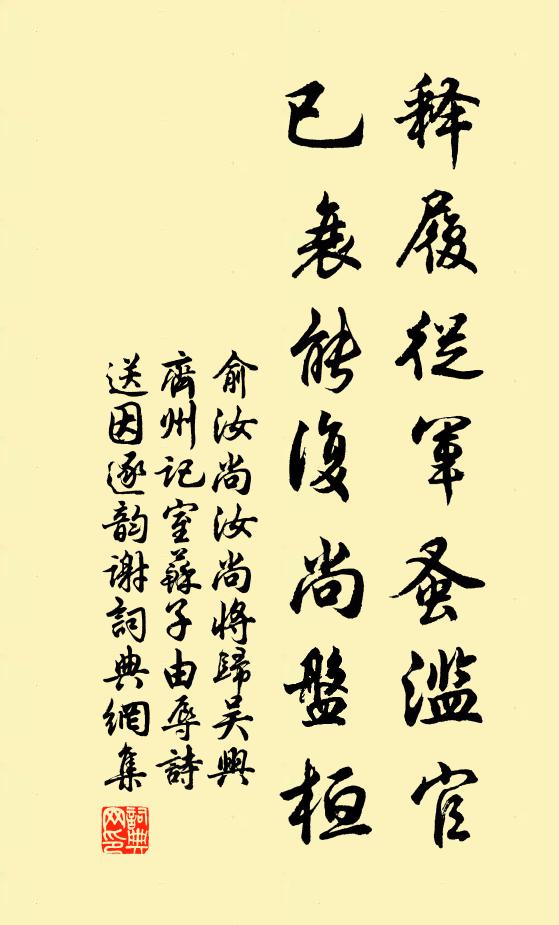 释履從軍蚤濫官
已衰能復尚盤桓
俞汝尚汝尚將歸吳興
齊州記室蘇子由辱詩
送因逐韵謝詞典網集
詞典
网印